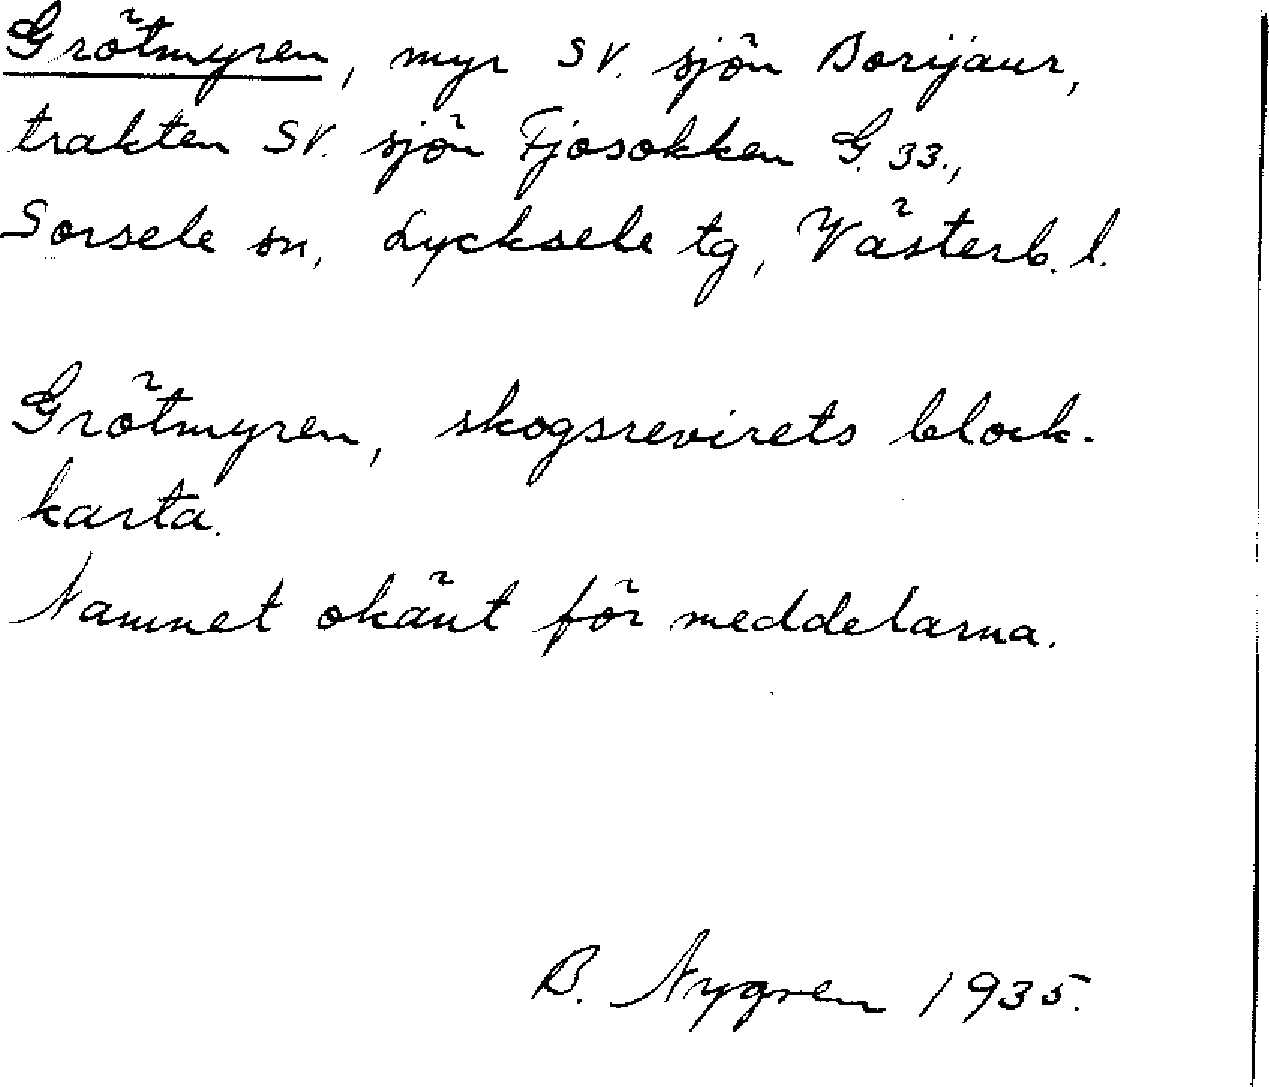 Grötmyren, myr SV. sjön Borijaur,
trakten SV. sjön Fjosokken G. 33.,
Sorsele sn, Lycksele tg, Västerb. l.
Grötmyren, skogsrevirets block-
karta.
Namnet okänt för meddelarna.
B. Nygren 1935.